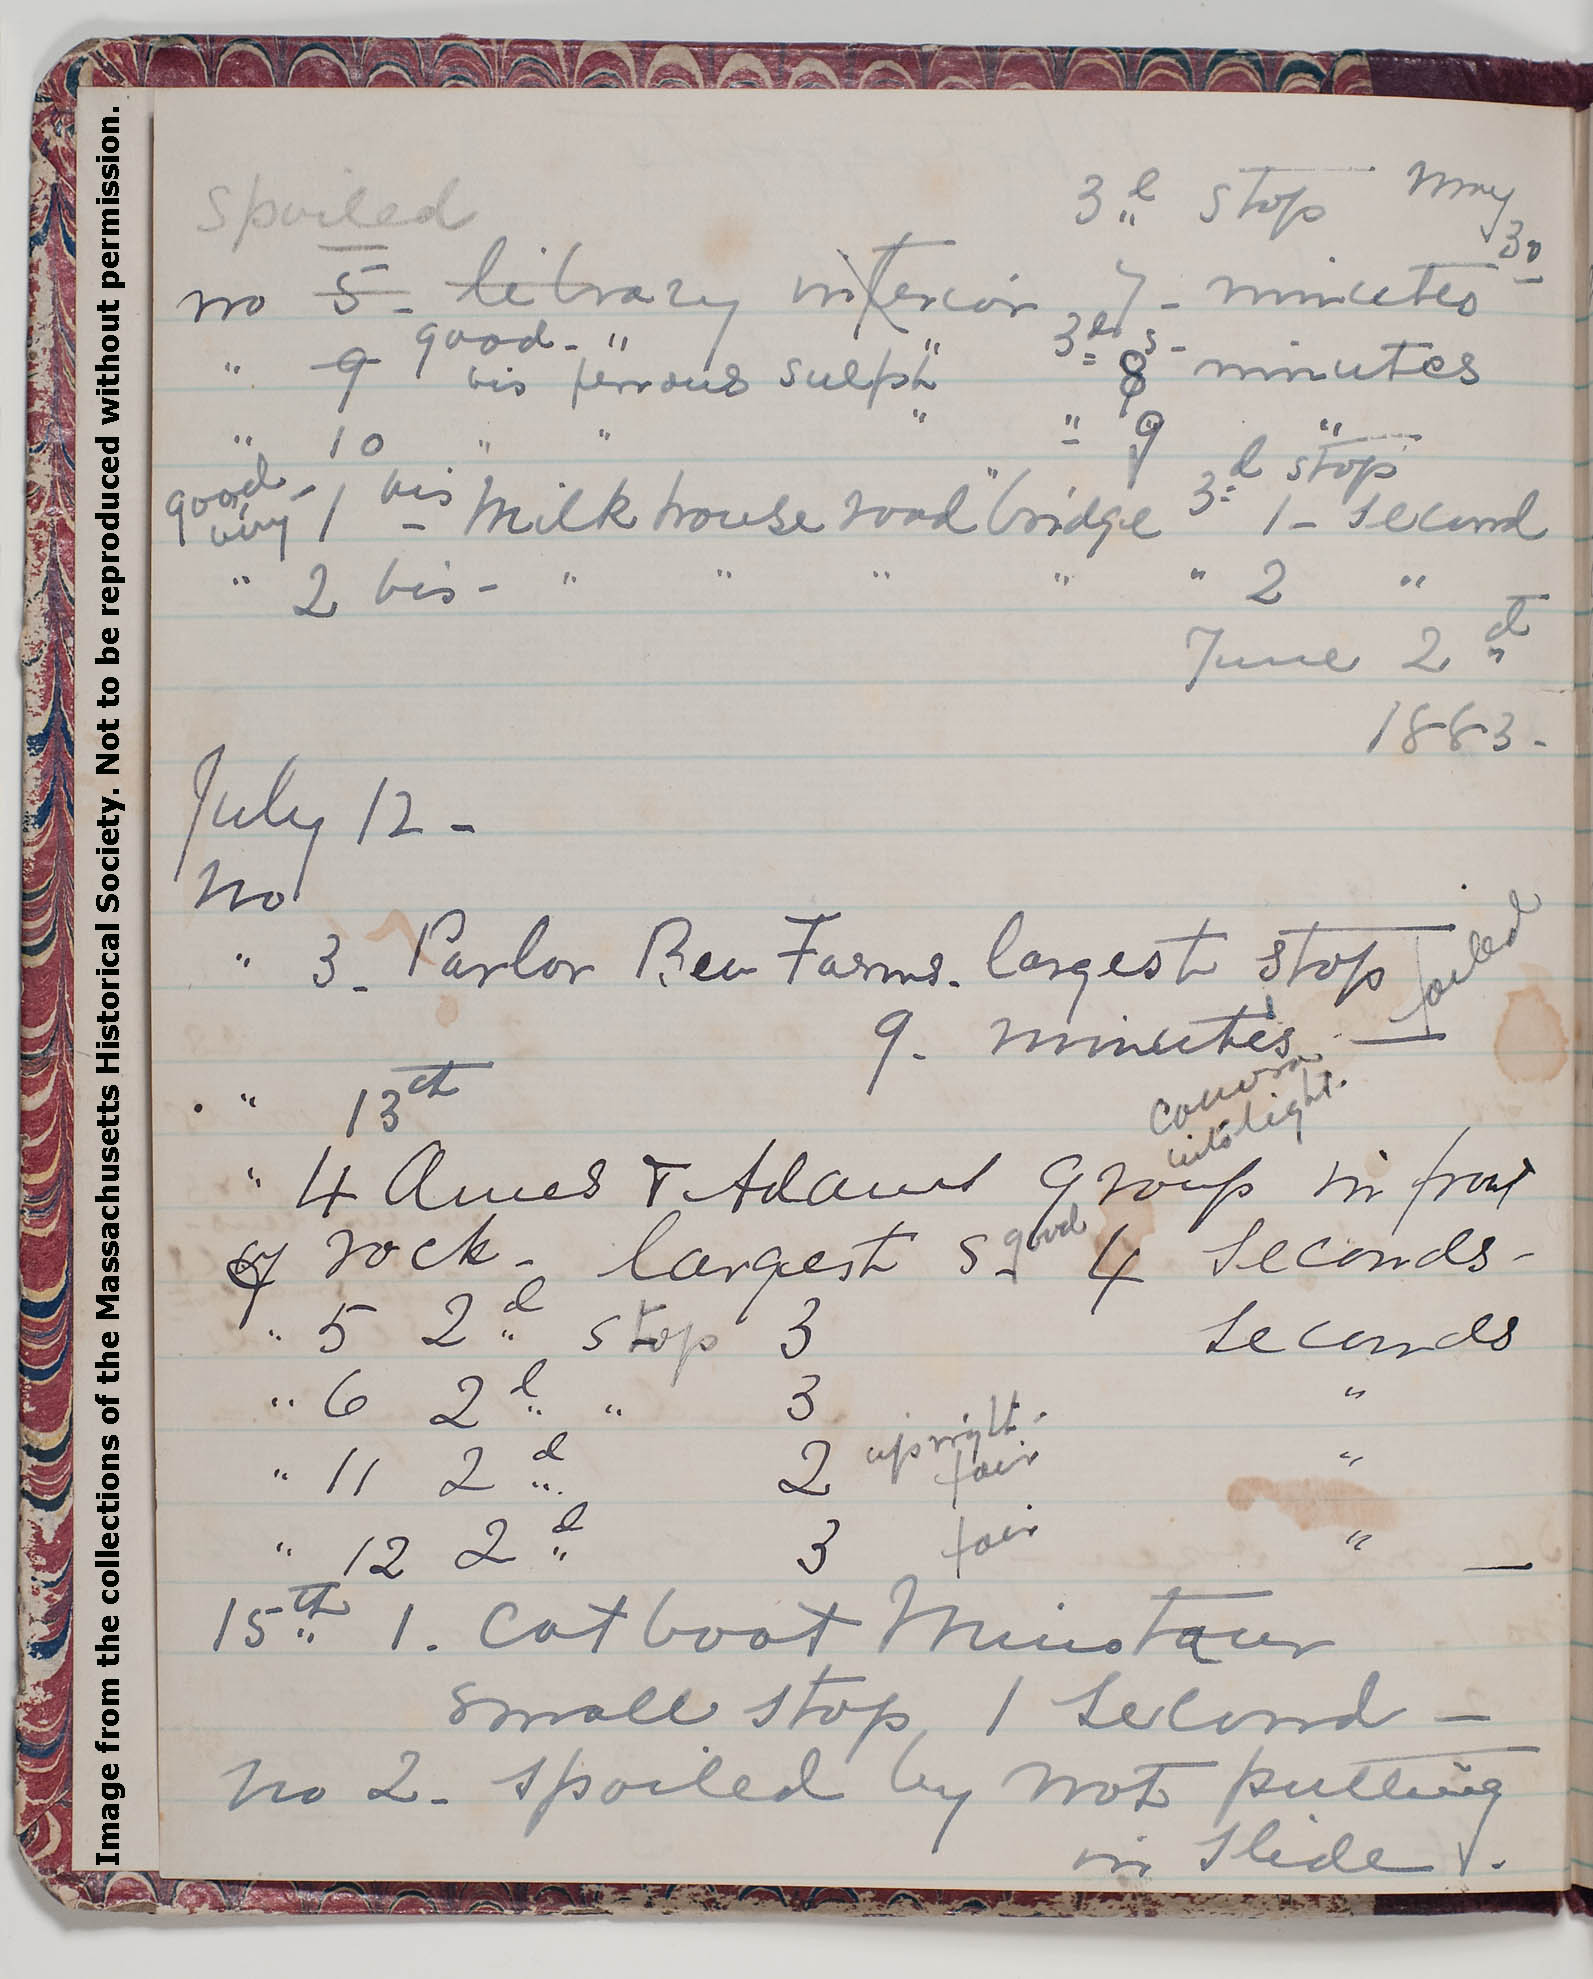 Image from the collections of the Massachusetts Historical Society. Not to be reproduced without permission.
spoiled 3d stop May 30
no 5 - library interior 7 - minutes
good - " " 3d s -
" 9 bis ferrous sulph 8 minutes
" 10 " " " " 9 "
good 3d stop
very 1 bis - Milk house road bridge 1 - second
" 2 bis - " " " " " 2 "
June 2d
1883 -
July 12 -
No
" 3 - Parlor Bev Farms - largest stop
9 - minutes - failed
" 13th
camera
into light.
" 4 Ames & Adams group in front
of rock - largest s - good 4 seconds -
" 5 2d stop 3 seconds
" 6 2d " 3 "
" 11 2d 2 upright - fair "
" 12 2d 3 fair " -
15th 1. Cat boat Minotaur
small stop 1 second -
No 2 - spoiled by not putting
in slide.